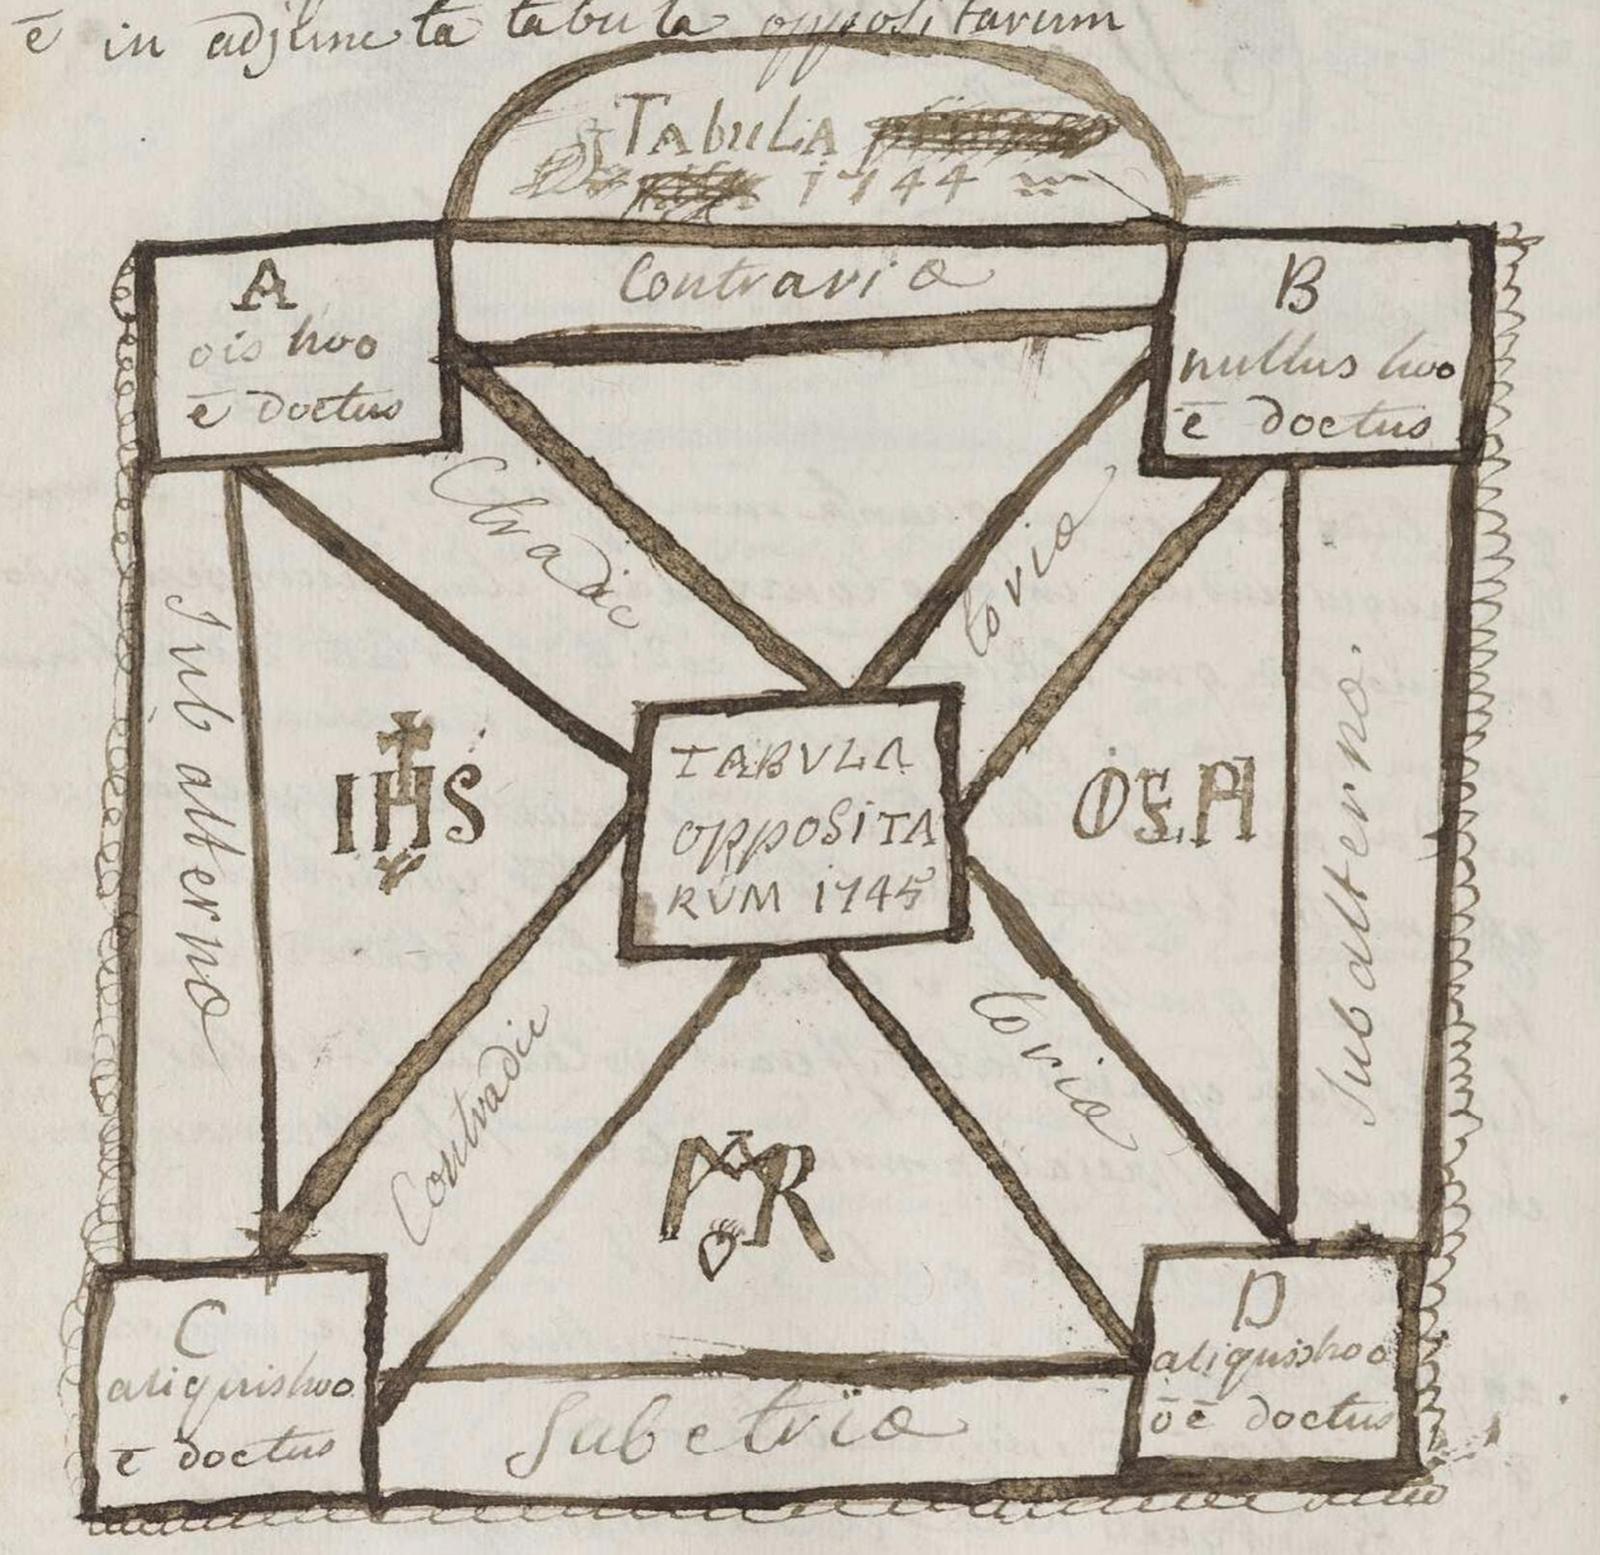 ē in adjuncta tabula oppositarum
Tabula
1744
Contrariæ
A
ois hoo
ē doctus
B
nullus hoo
ē doctus
Ctradic
toriæ
Subalternæ
IHS
TABVLA
oppoSiTA
RVM 1745
Subalternæ.
Contradic
toriæ
MR
C
aliquis hoo
ē doctus
D
aliquis hoo
ō ē doctus
Subctriæ